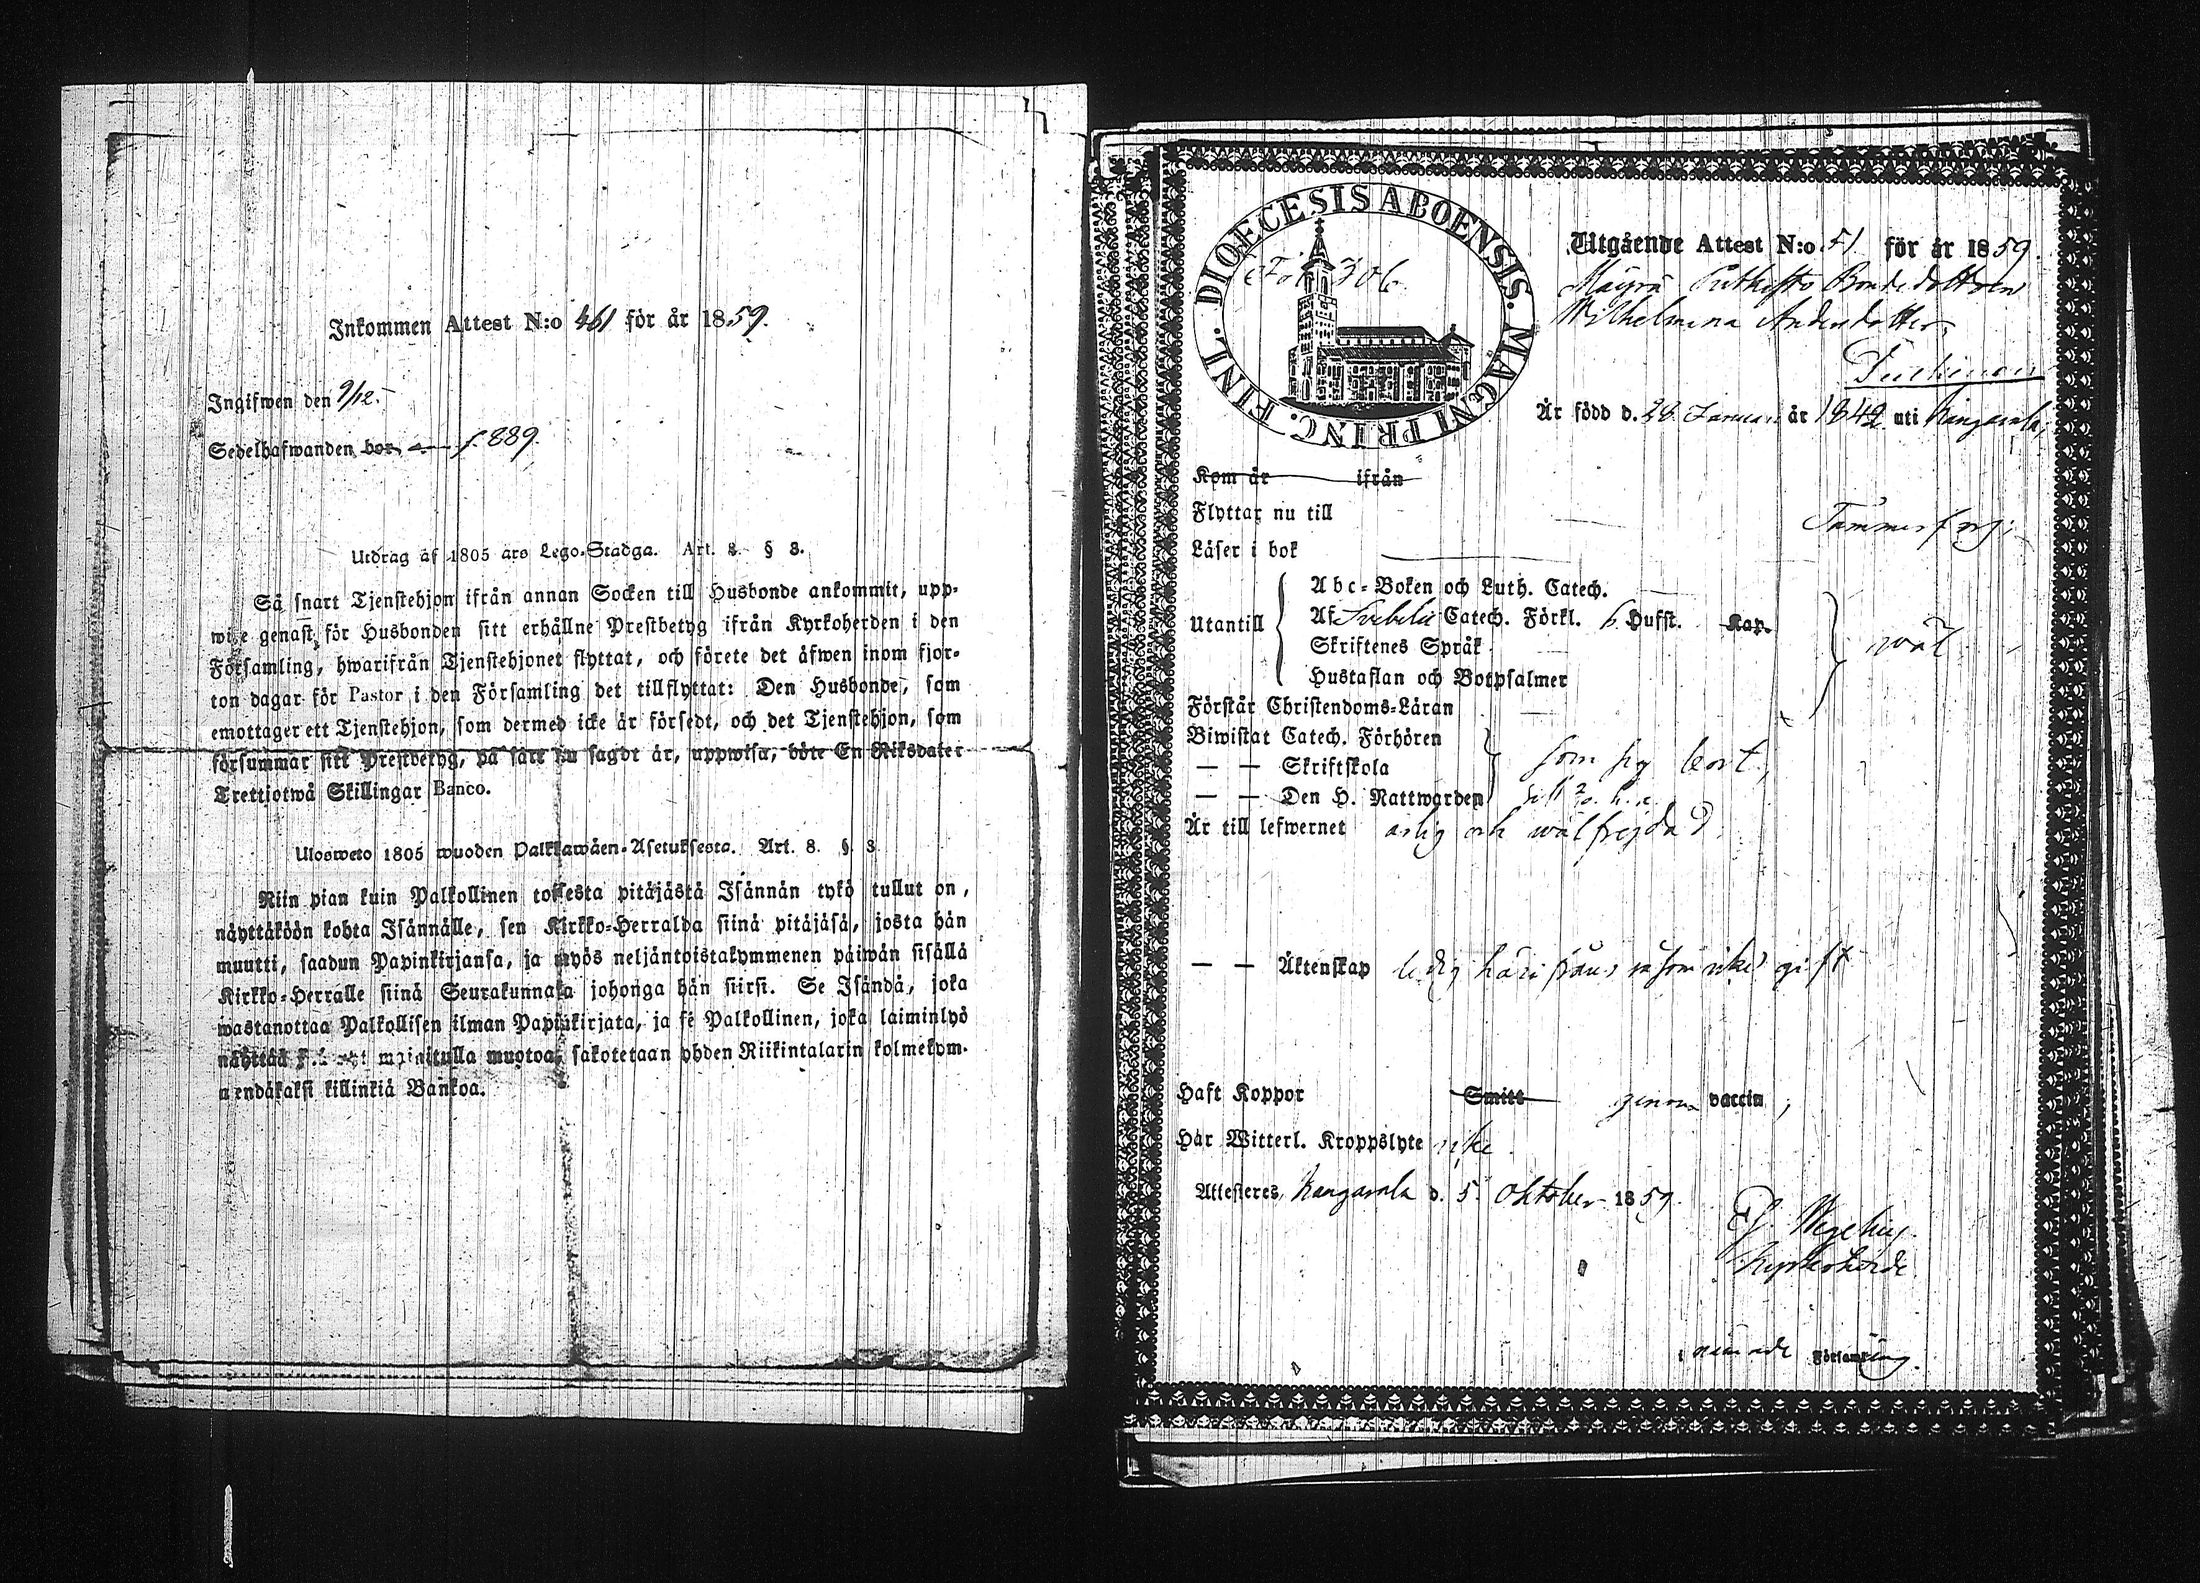 Inkommen Attest N:o 461 för år 1859.
Ingifwen den 9/12.
Sedelhafwanden bor f. 889.
Utdrag af 1805 års Lego-Stadga. Art. 8. § 3.
Så snart Tjenstehjon ifrån annan Socken till Husbonde ankommit, upp-
wise genast för Husbonden sitt erhållne Prestbetyg ifrån Kyrkoherden i den
Församling, hwarifrån Tjenstehjonet flyttat, och förete det äfwen inom fjor-
ton dagar för Pastor i den Församling det tillflyttat: Den Husbonde, som
emottager ett Tjenstehjon, som dermed icke är försedt, och det Tjenstehjon, som
försummar sitt Prestbetyg, på sätt nu sagdt är, uppwisa, böte En Riksdaler
Trettjotwå Skillingar Banco.
Ulosweto 1805 wuoden Palkkawäen-Asetuksesta. Art. 8. § 3
Niin pian kuin Palkollinen toisesta pitäjästä Isännän tykö tullut on,
näyttäköön kohta Isännälle, sen Kirkko-Herralda siinä pitäjäsä, josta hän
muutti, saadun Papinkirjansa, ja myös neljäntoistakymmenen päiwän sisällä
Kirkko-Herralle siinä Seurakunnasa johonga hän siirsi. Se Isändä, joka
wastanottaa Palkollisen ilman Papinkirjata, ja se Palkollinen, joka laiminlyö
näyttää mainitulla muotoa, sakotetaan yhden Riikintalarin kolmekym-
endäkaksi killinkiä Bankoa.
DIOECESIS ABOENSIS. MAGNI PRINC. FINL.
Fol. 306.
Utgående Attest N:o 51 för år 1859.
Bondedottren
Wilhelmina Andersdotter
Är född d. 28 Januari år 1842 uti Kangasala,
Kom år ifrån
Flyttar nu till Tammerfors;
Läser i bok
Utantill
Abc-Boken och Luth. Catech.
Af Svebelii Catech. Förkl. 6 Hufst. Kap.
Skriftenes Språk
Hustaflan och Botpsalmer
wäl
Förstår Christendoms-Läran
Biwistat Catech. Förhören
— — Skriftskola
— — Den H. Nattwarden
som sig bort,
Är till lefwernet ärlig och wälfrejdad.
— — Äktenskap ledig härifrån såsom icke gift
Haft Koppor Smitt genom vaccin;
Har Witterl. Kroppslyte icke
Attesteres, Kangasala d. 5. Oktober 1859.
Kyrkoherde
i nämnde Församling.